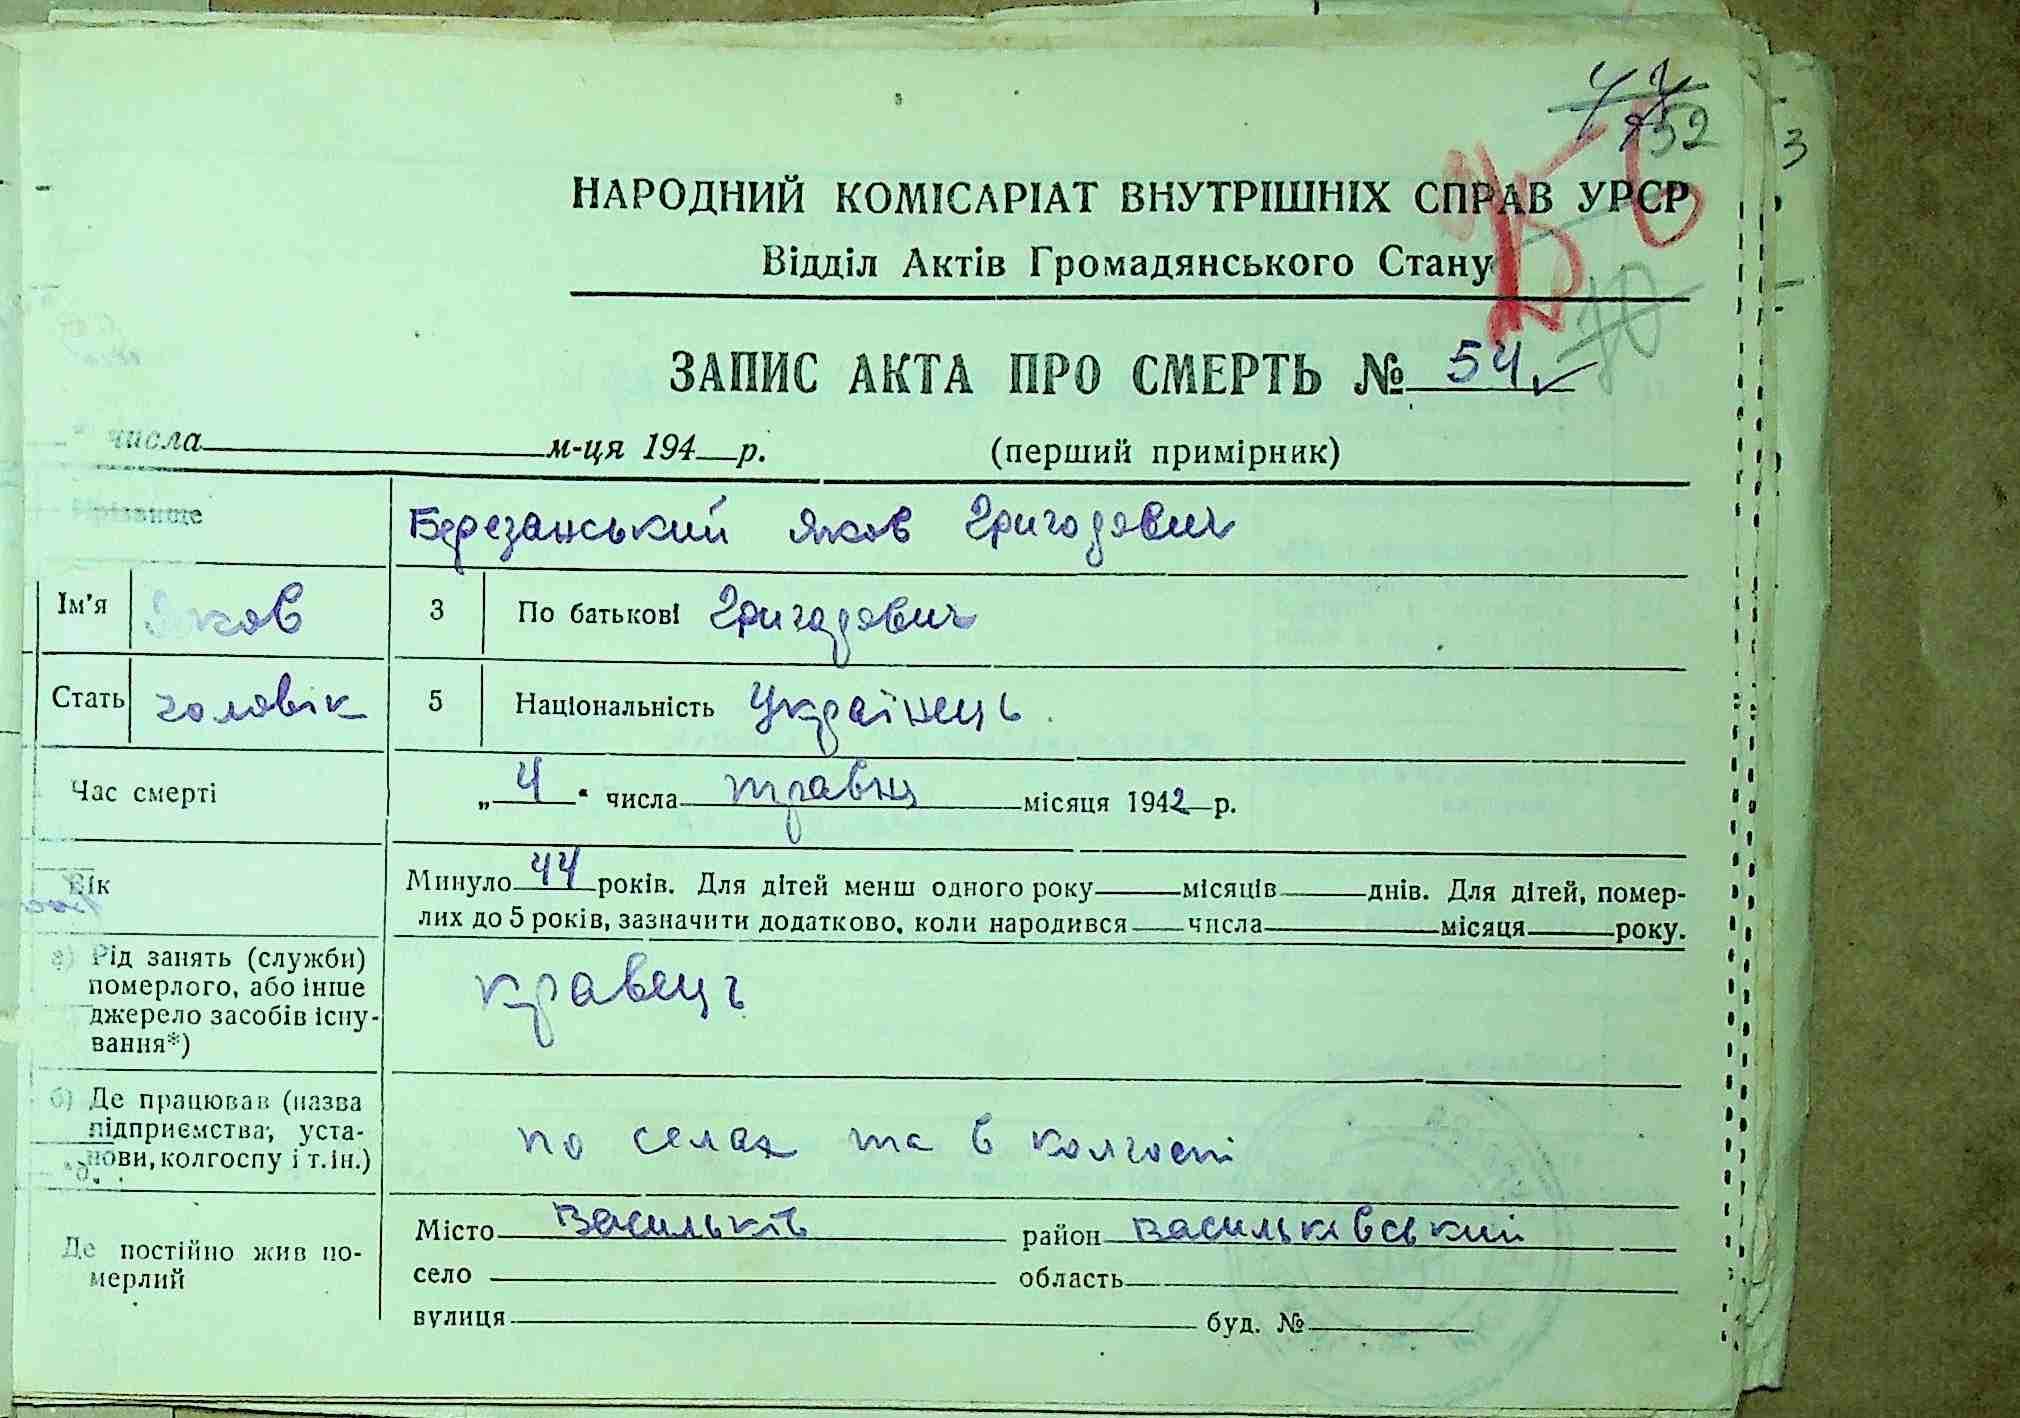 52
3
НАРОДНИЙ КОМІСАРІАТ ВНУТРІШНІХ СПРАВ УРСР
Відділ Актів Громадянського Стану
ЗАПИС АКТА ПРО СМЕРТЬ № 54
числа м-ця 194 р. (перший примірник)
Прізвище Березанський Яков Григорович
Ім'я Яков 3 По батькові Григорович
Стать чоловік 5 Національність Українець
Час смерті „4“ числа травня місяця 1942 р.
Вік Минуло 44 років. Для дітей менш одного року місяців днів. Для дітей, помер-
лих до 5 років, зазначити додатково, коли народився числа місяця року.
а) Рід занять (служби)
померлого, або інше
джерело засобів існу-
вання*)
кравець
б) Де працював (назва
підприємства, уста-
нови, колгоспу і т. ін.)
по селах та в колгоспі
Де постійно жив по-
мерлий
Місто Васильків район Васильківський
село область
вулиця буд. №